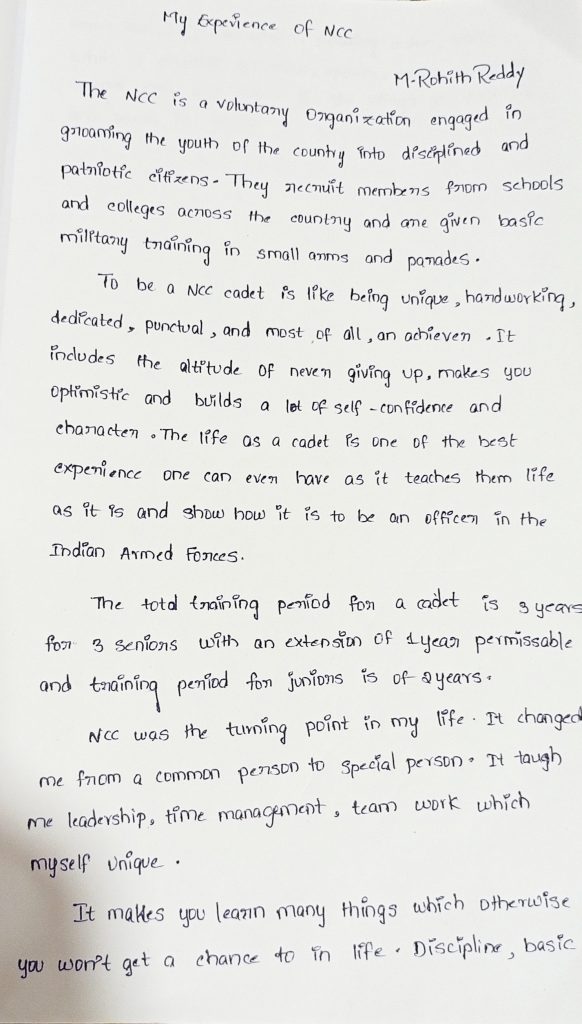 My Experience of NCC
M-Rohith Reddy
The NCC is a voluntary Organization engaged in
grooming the youth of the country into disciplined and
patriotic citizens. They recruit members from schools
and colleges across the country and are given basic
military training in small arms and parades.
To be a NCC cadet is like being unique, handworking,
dedicated, punctual, and most of all, an achiever. It
includes the altitude of never giving up, makes you
optimistic and builds a lot of self-confidence and
character. The life as a cadet is one of the best
experience one can ever have as it teaches them life
as it is and show how it is to be an officer in the
Indian Armed Forces.
The total training period for a cadet is 3 years
for 3 seniors with an extension of 1 year permissable
and training period for juniors is of 2 years.
NCC was the turning point in my life. It changed
me from a common person to special person. It taugh
me leadership, time management, team work which
myself unique.
It makes you learn many things which otherwise
you won't get a chance to in life. Discipline, basic